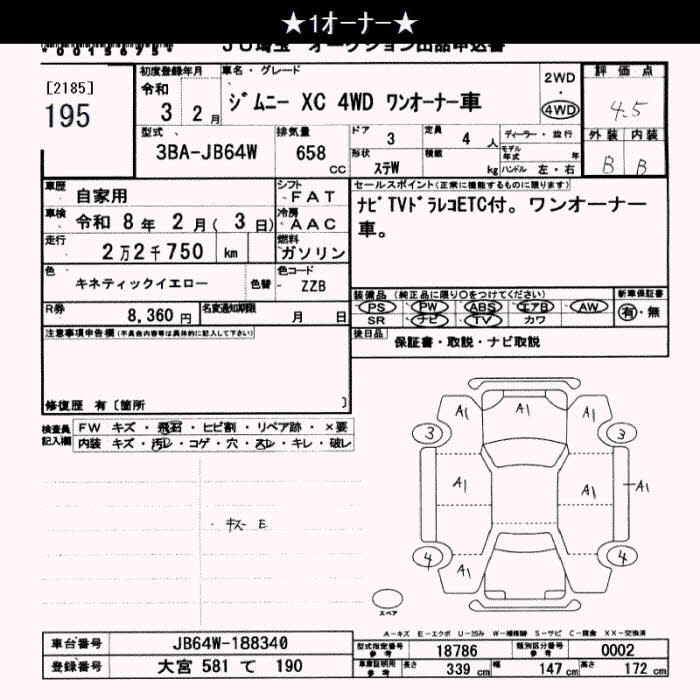 ★1オーナー★
JU埼玉 オークション出品申込書
[2185]
195
初度登録年月
令和
3 2月
車名・グレード
ジムニー XC 4WD ワンオーナー車
2WD
・
4WD
評価点
4.5
外装 内装
B B
型式
3BA-JB64W
排気量
658
CC
ドア
3
定員
4 人
形状
ステW
積載
kg
ディーラー・並行
モデル年式 年
ハンドル 左・右
車歴
自家用
シフト
FAT
車検
令和 8年 2月( 3日)
冷房
AAC
走行
2万2千750 km
燃料
ガソリン
色
キネティックイエロー
色替
色コード
ZZB
R券
8,360 円
名変通知期限
月 日
セールスポイント(正常に機能するものに限ります)
ナビTVドラレコETC付。ワンオーナー
車。
装備品 (純正品に限り○をつけてください)
PS PW ABS エアB AW
SR ナビ TV カワ
新車保証書
有・無
後日品
保証書・取説・ナビ取説
注意事項申告欄(不具合内容等は具体的に記入して下さい)
修復歴 有〔箇所 〕
検査員記入欄
FW キズ・飛石・ヒビ割・リペア跡・×要
内装 キズ・汚レ・コゲ・穴・スレ・キレ・破レ
・キズ E
A1 A1 A1
3 3
A1 A1 A1
4 4
A1
スペア
A-キズ E-エクボ U-凹ミ W-補修跡 S-サビ C-腐食 XX-交換済
車台番号
JB64W-188340
登録番号
大宮 581 て 190
型式指定番号
参考
18786
類別区分番号
参考
0002
車庫証明用
参考
長さ 339 cm 幅 147 cm 高さ 172 cm